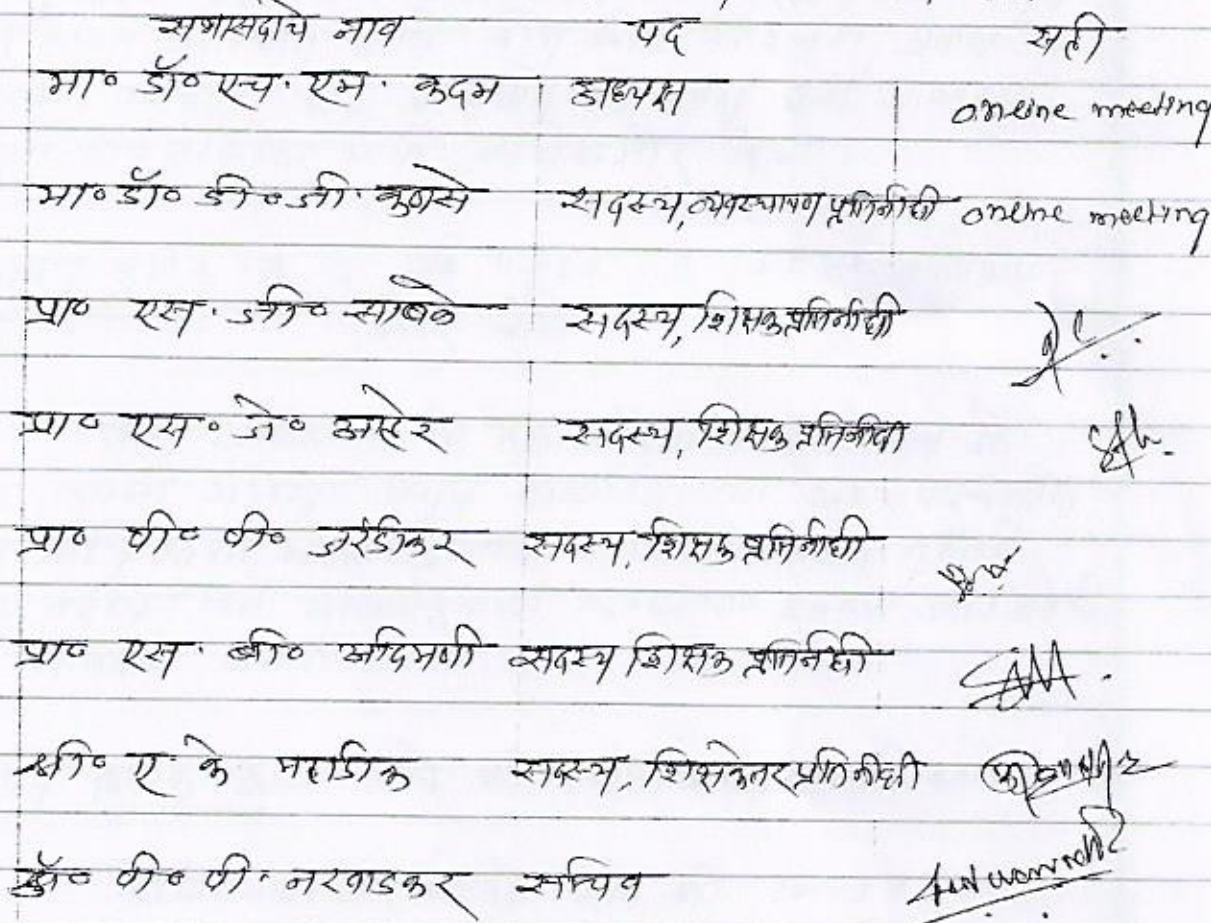 सभासदाचे नाव पद सही
मा० डॉ० एच. एम. कदम अध्यक्ष online meeting
मा० डॉ० डी० जी. कणसे सदस्य, व्यवस्थापण प्रतिनीधी online meeting
प्रा० एस. जी० साबळे सदस्य, शिक्षक प्रतिनीधी
प्रा० एस० जे० अहेर सदस्य, शिक्षक प्रतिनीधी
प्रा० पी० व्ही० जरंडीकर सदस्य, शिक्षक प्रतिनीधी
प्रा० एस. बी० आदिमणी सदस्य शिक्षक प्रतिनीधी
श्री० ए. के महाडीक सदस्य, शिक्षकेतर प्रतिनीधी
डॉ० व्ही० पी. नरवाडकर सचिव